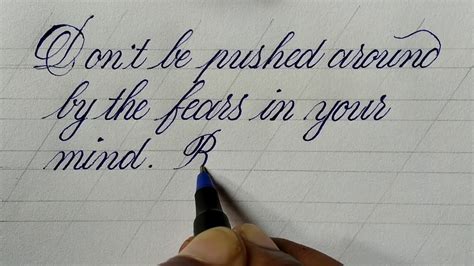 Don't be pushed around
by the fears in your
mind. B